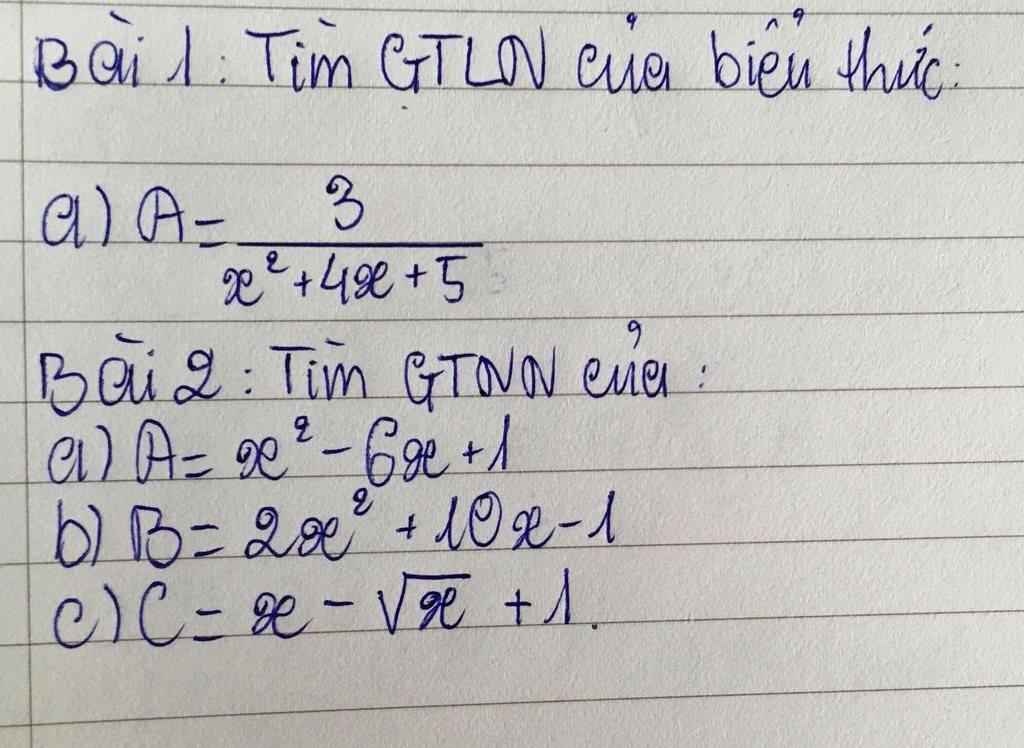 Bài 1: Tìm GTLN của biểu thức:
a) A = 3/(x² + 4x + 5)
Bài 2: Tìm GTNN của:
a) A = x² - 6x + 1
b) B = 2x² + 10x - 1
c) C = x - √x + 1.